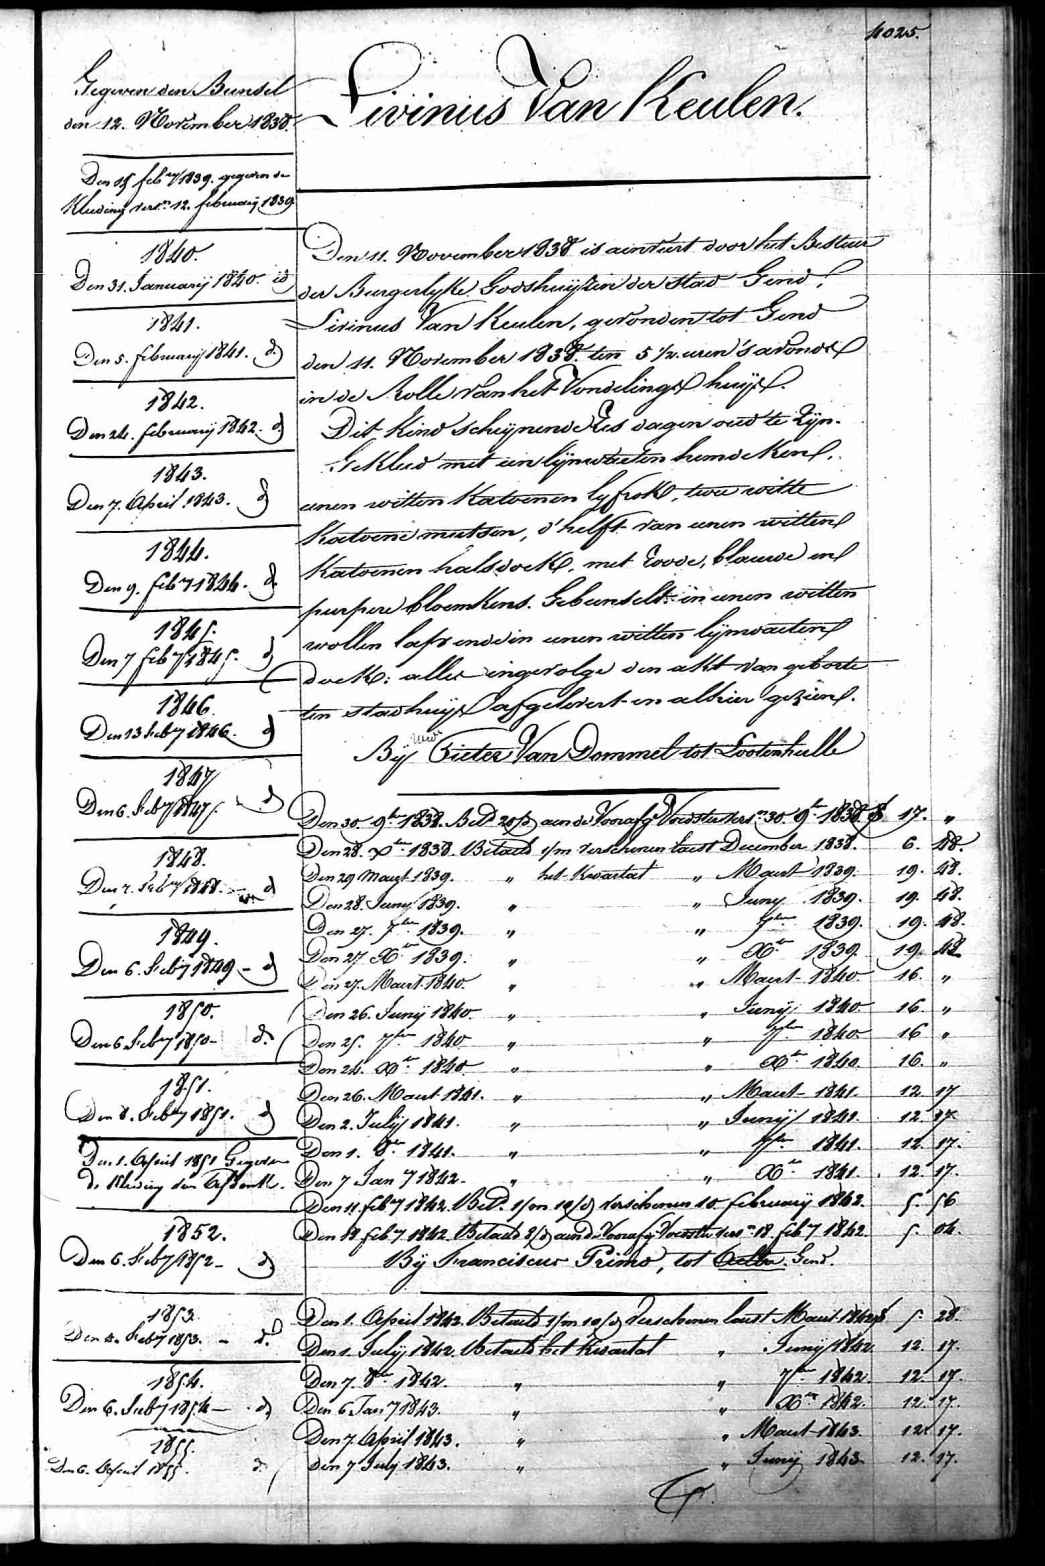 4025.
Livinus Van Keulen.
Gegeven den Bunsel
den 12. November 1838.
Den 15 feb.ry 1839. gegeven de
Kleeding vers.n 12. februarij 1839
1840.
Den 31. Januarij 1840. id
1841.
Den 5. februarij 1841. d.
1842.
Den 24. februarij 1842. d
1843.
Den 7. April 1843. d
1844.
Den 9. feb.y 1844. d.
1845.
Den 7 feb.y 1845. d
1846.
Den 13 feb.y 1846. d
1847
Den 6. feb.y 1847. d
1848.
Den 7. feb.y 1848. - d
1849.
Den 6. feb.y 1849 - d
1850.
Den 6 feb.y 1850 - d.
1851.
Den 8. feb.y 1851. d
Den 1. April 1851 Gegeven
de Kleeding den
1852.
Den 6. feb.y 1852 - d
1853.
Den 4. feb.y 1853. - d.
1854.
Den 6. feb.y 1854 - d
1855.
Den 6. April 1855. d.
Den 11. November 1838 is aenveirt door het Bestuur
der Burgerlyke Godshuijzen der stad Gend,
Livinus Van Keulen, gevonden tot Gend
den 11. November 1838. ten 5 1/2 uren 's avonds
in de Rolle van het Vondelings huijs.
Dit kind schijnende Zes dagen oud te Zijn.
Gekleed met een lijnwaeten hemdeken,
eenen witten Katoenen lyfrok, twee witte
Katoene mutsen, d'helft van eenen witten
Katoenen halsdoek, met roode, blauwe en
purpere bloemkens. Gebunselt in eenen witten
wollen laps ende in eenen witten lijnwaeten
doek: alles ingevolge den akt van geborte
ten stadhuijse afgelevert en alhier gezien.
Bij Pieter Van Dommel tot Lootenhulle
Den 30. 9.br 1838. Bet.d 20/d aen de Voorafg. Voedster vers.n 30. 9.br 1838. f 17. "
Den 28. X.br 1838. Betaeld 1/m verschenen laest December 1838. 6. 48.
Den 29 Maart 1839. " het Kwartael " Maart 1839. 19. 48.
Den 28. Juny 1839. " " Juny 1839. 19. 48.
Den 27. 7.ber 1839. " " 7.ber 1839. 19. 48.
Den 27 X.br 1839. " " X.br 1839. 19. 48
Den 27. Maart 1840. " " Maart 1840. 16. "
Den 26. Junij 1840. " " Junij 1840. 16. "
Den 25. 7.ber 1840 " " 7.ber 1840. 16 "
Den 24. X.br 1840 " " X.br 1840. 16. "
Den 26. Maart 1841. " " Maart 1841. 12 17
Den 2. Julij 1841. " " Junij 1841. 12 17.
Den 1. 8.br 1841. " " 7.ber 1841. 12. 17.
Den 7 Jan.y 1842. " " X.br 1841. 12. 17.
Den 11. feb.y 1842. Bet.d. 1/m 10/d verschenen 10. februarij 1842. 5. 56
Den 18 feb.y 1842. Betaeld 8/d aen de Voorafg. Voedster vers.n 18. feb.y 1842. 5. 04.
Bij Franciscus Primo, tot Gend.
Den 1. April 1842. Betaeld 1/m 10/d Verschenen laest Maart 1842. f 5. 28.
Den 1. Julij 1842. Betaeld het Kwartael " Junij 1842. 12. 17.
Den 7. 8.br 1842. " " 7.ber 1842. 12 17.
Den 6. Jan.y 1843. " " X.br 1842. 12. 17.
Den 7. April 1843. " " Maart 1843. 12. 17.
Den 7 July 1843. " " Junij 1843. 12. 17.